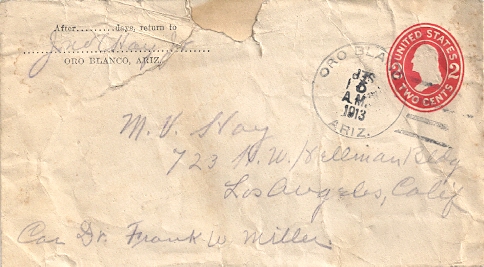 After..........days, return to
ORO BLANCO, ARIZ.
ORO BLANCO
6
A.M.
1913
ARIZ.
UNITED STATES
2 2
TWO CENTS
M. V.
723 H. W. Hellman Bldg
Los Angeles, Calif
Car Dr. Frank W Miller